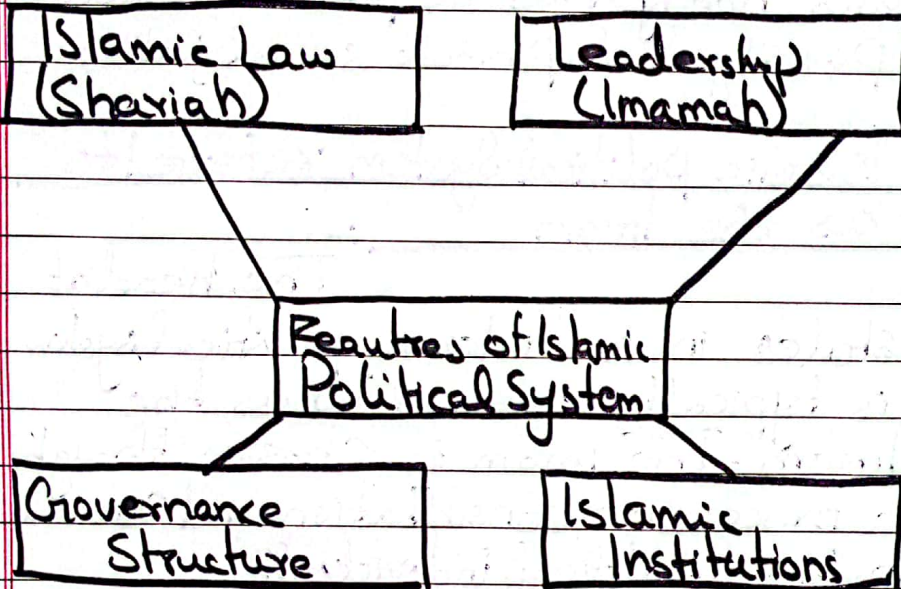 Islamic Law
(Shariah)
Leadership
(Imamah)
Feautres of Islamic
Political System
Governance
Structure.
Islamic
Institutions